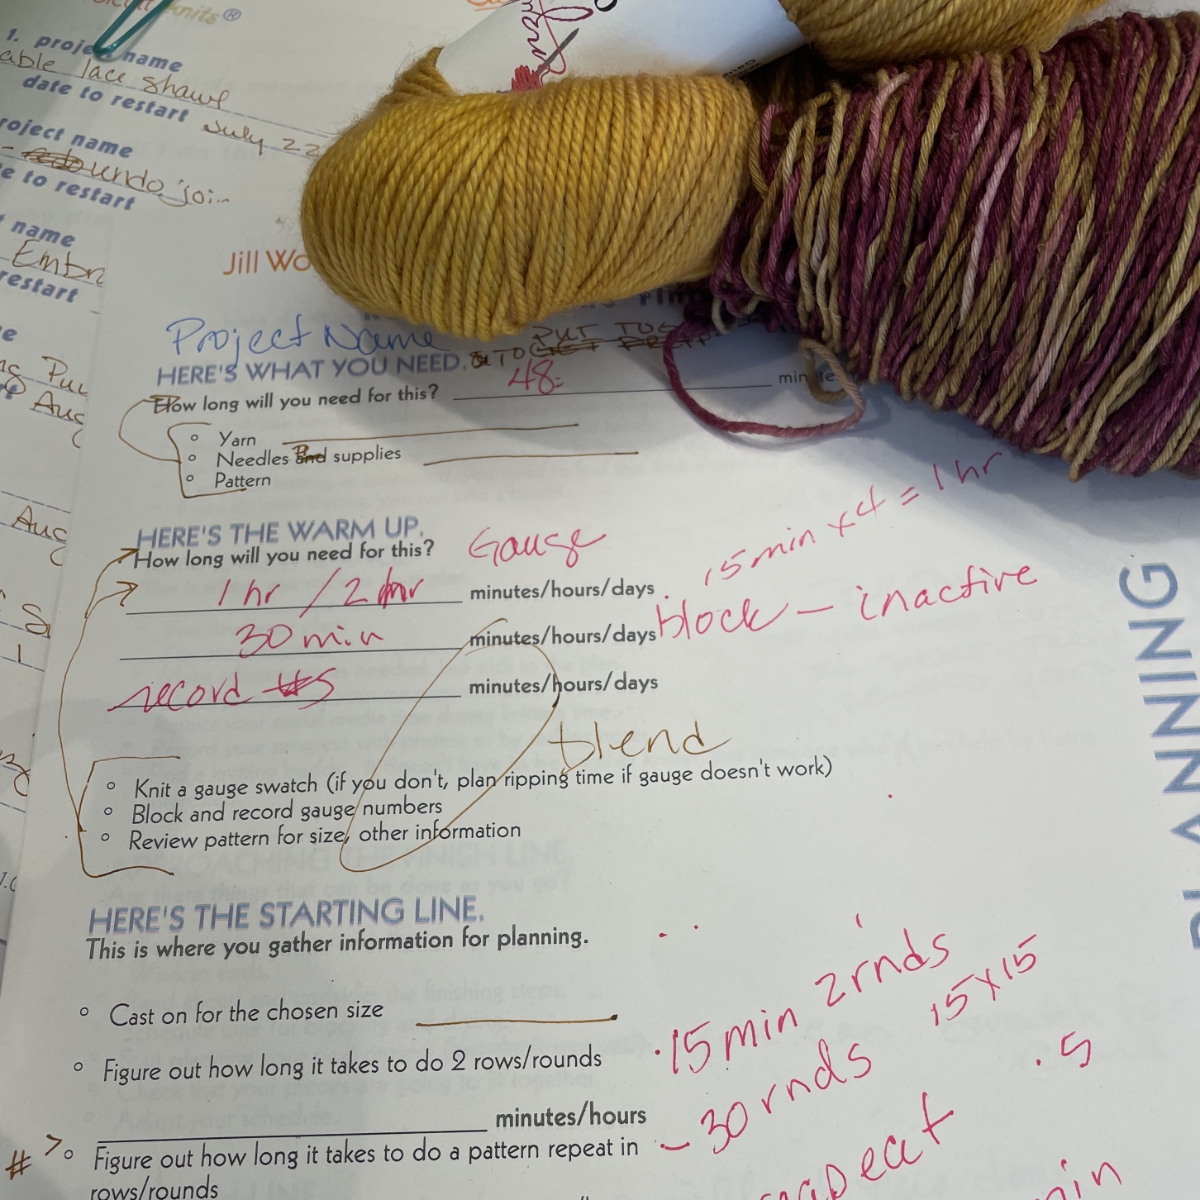 knits®
1. project name
able lace shawl
date to restart July 22
project name
undo joi
te to restart
name
Embr
restart
Aug
Aug
Jill Wo
Project Name
PUT TOG
HERE'S WHAT YOU NEED. & TO
How long will you need for this? 48 minute
Yarn
Needles and supplies
Pattern
HERE'S THE WARM UP.
How long will you need for this? Gauge
15 min x 4 = 1 hr
1 hr / 2 hr minutes/hours/days
30 min minutes/hours/days block – inactive
record #s minutes/hours/days
blend
Knit a gauge swatch (if you don't, plan ripping time if gauge doesn't work)
Block and record gauge numbers
Review pattern for size, other information
HERE'S THE STARTING LINE.
This is where you gather information for planning.
Cast on for the chosen size
Figure out how long it takes to do 2 rows/rounds
15 min 2 rnds
15 x 15
minutes/hours
– 30 rnds
.5
# > Figure out how long it takes to do a pattern repeat in
rows/rounds
repeat
min
PLANNING